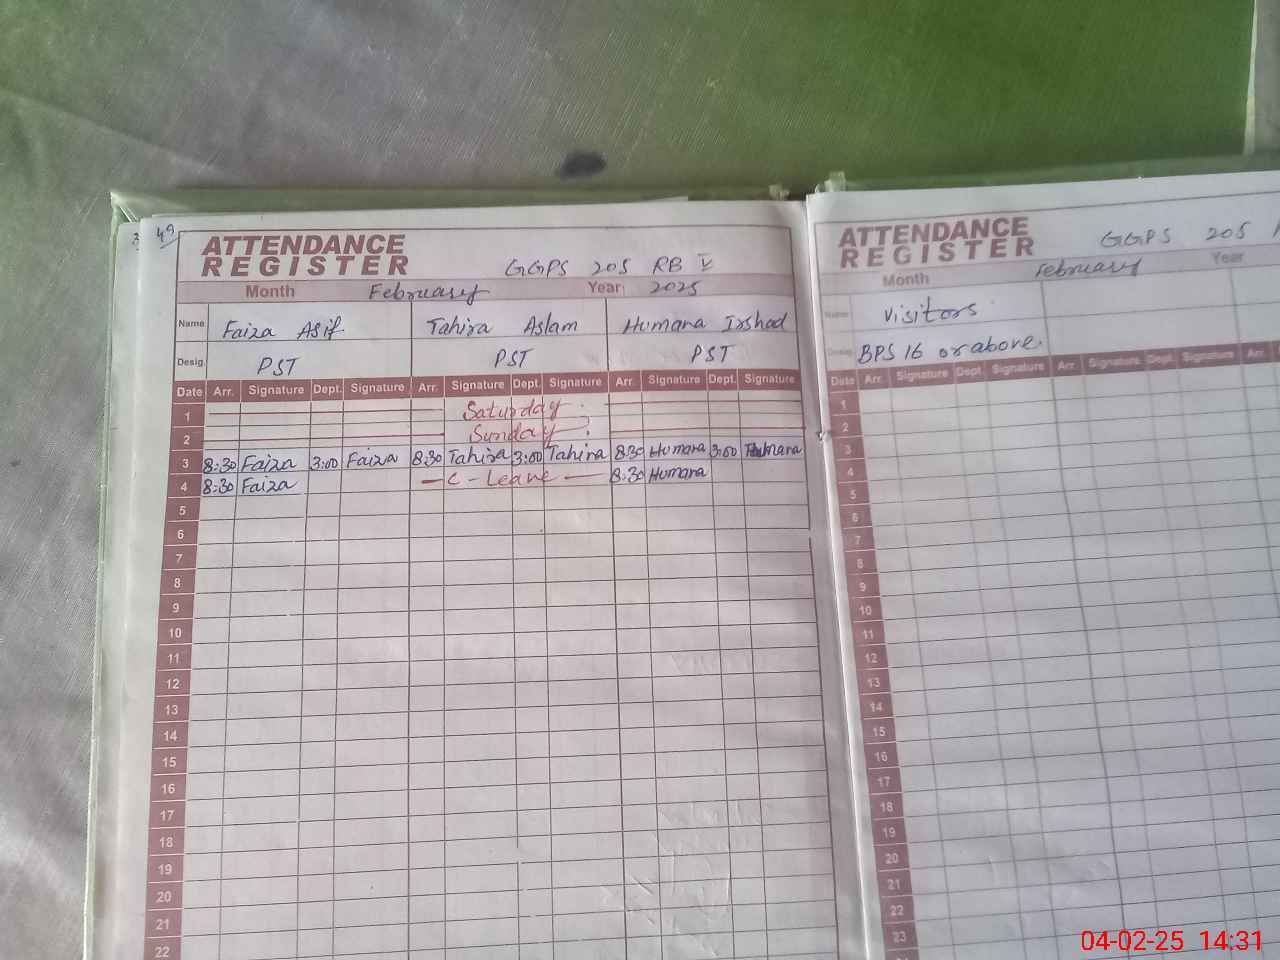 49
ATTENDANCE
REGISTER
GGPS 205 RB V
Month February Year 2025
Name Faiza Asif Tahira Aslam Humara Irshad
Desig. PST PST PST
Date Arr. Signature Dept. Signature Arr. Signature Dept. Signature Arr. Signature Dept. Signature
1 Saturday
2 Sunday
3 8:30 Faiza 3:00 Faiza 8:30 Tahira 3:00 Tahira 8:30 Humara 3:00 Humara
4 8:30 Faiza C-Leave 8:30 Humara
5
6
7
8
9
10
11
12
13
14
15
16
17
18
19
20
21
22
ATTENDANCE
REGISTER
GGPS 205
Month February Year
Name Visitors
Desig. BPS 16 or above.
Date Arr. Signature Dept. Signature Arr. Signature Dept. Signature Arr.
1
2
3
4
5
6
7
8
9
10
11
12
13
14
15
16
17
18
19
20
21
22
23
04-02-25 14:31